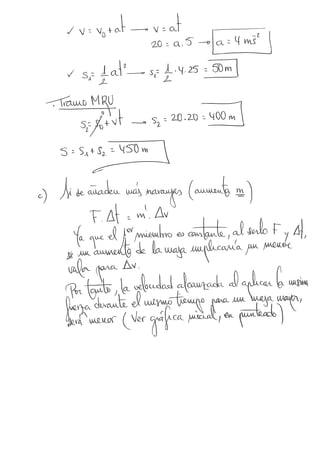 ✓ v = v₀ + at → v = at
20 = a . 5 → a = 4 ms²
✓ s₁ = 1/2 at² → s₁ = 1/2 . 4 . 25 = 50 m
. Tramo MRU
s₂ = s₀ + vt → s₂ = 20 . 20 = 400 m
S = S₁ + S₂ = 450 m
c) Si se añaden más naranjas (aumenta m)
F . Δt = m' . Δv
Ya que el 1er miembro es constante, al serlo F y Δt,
un aumento de la masa implicaría un menor
valor para Δv.
Por tanto, la velocidad alcanzada al aplicar la misma
fuerza durante el mismo tiempo para una masa mayor,
será menor (Ver gráfica inicial, en punteado)